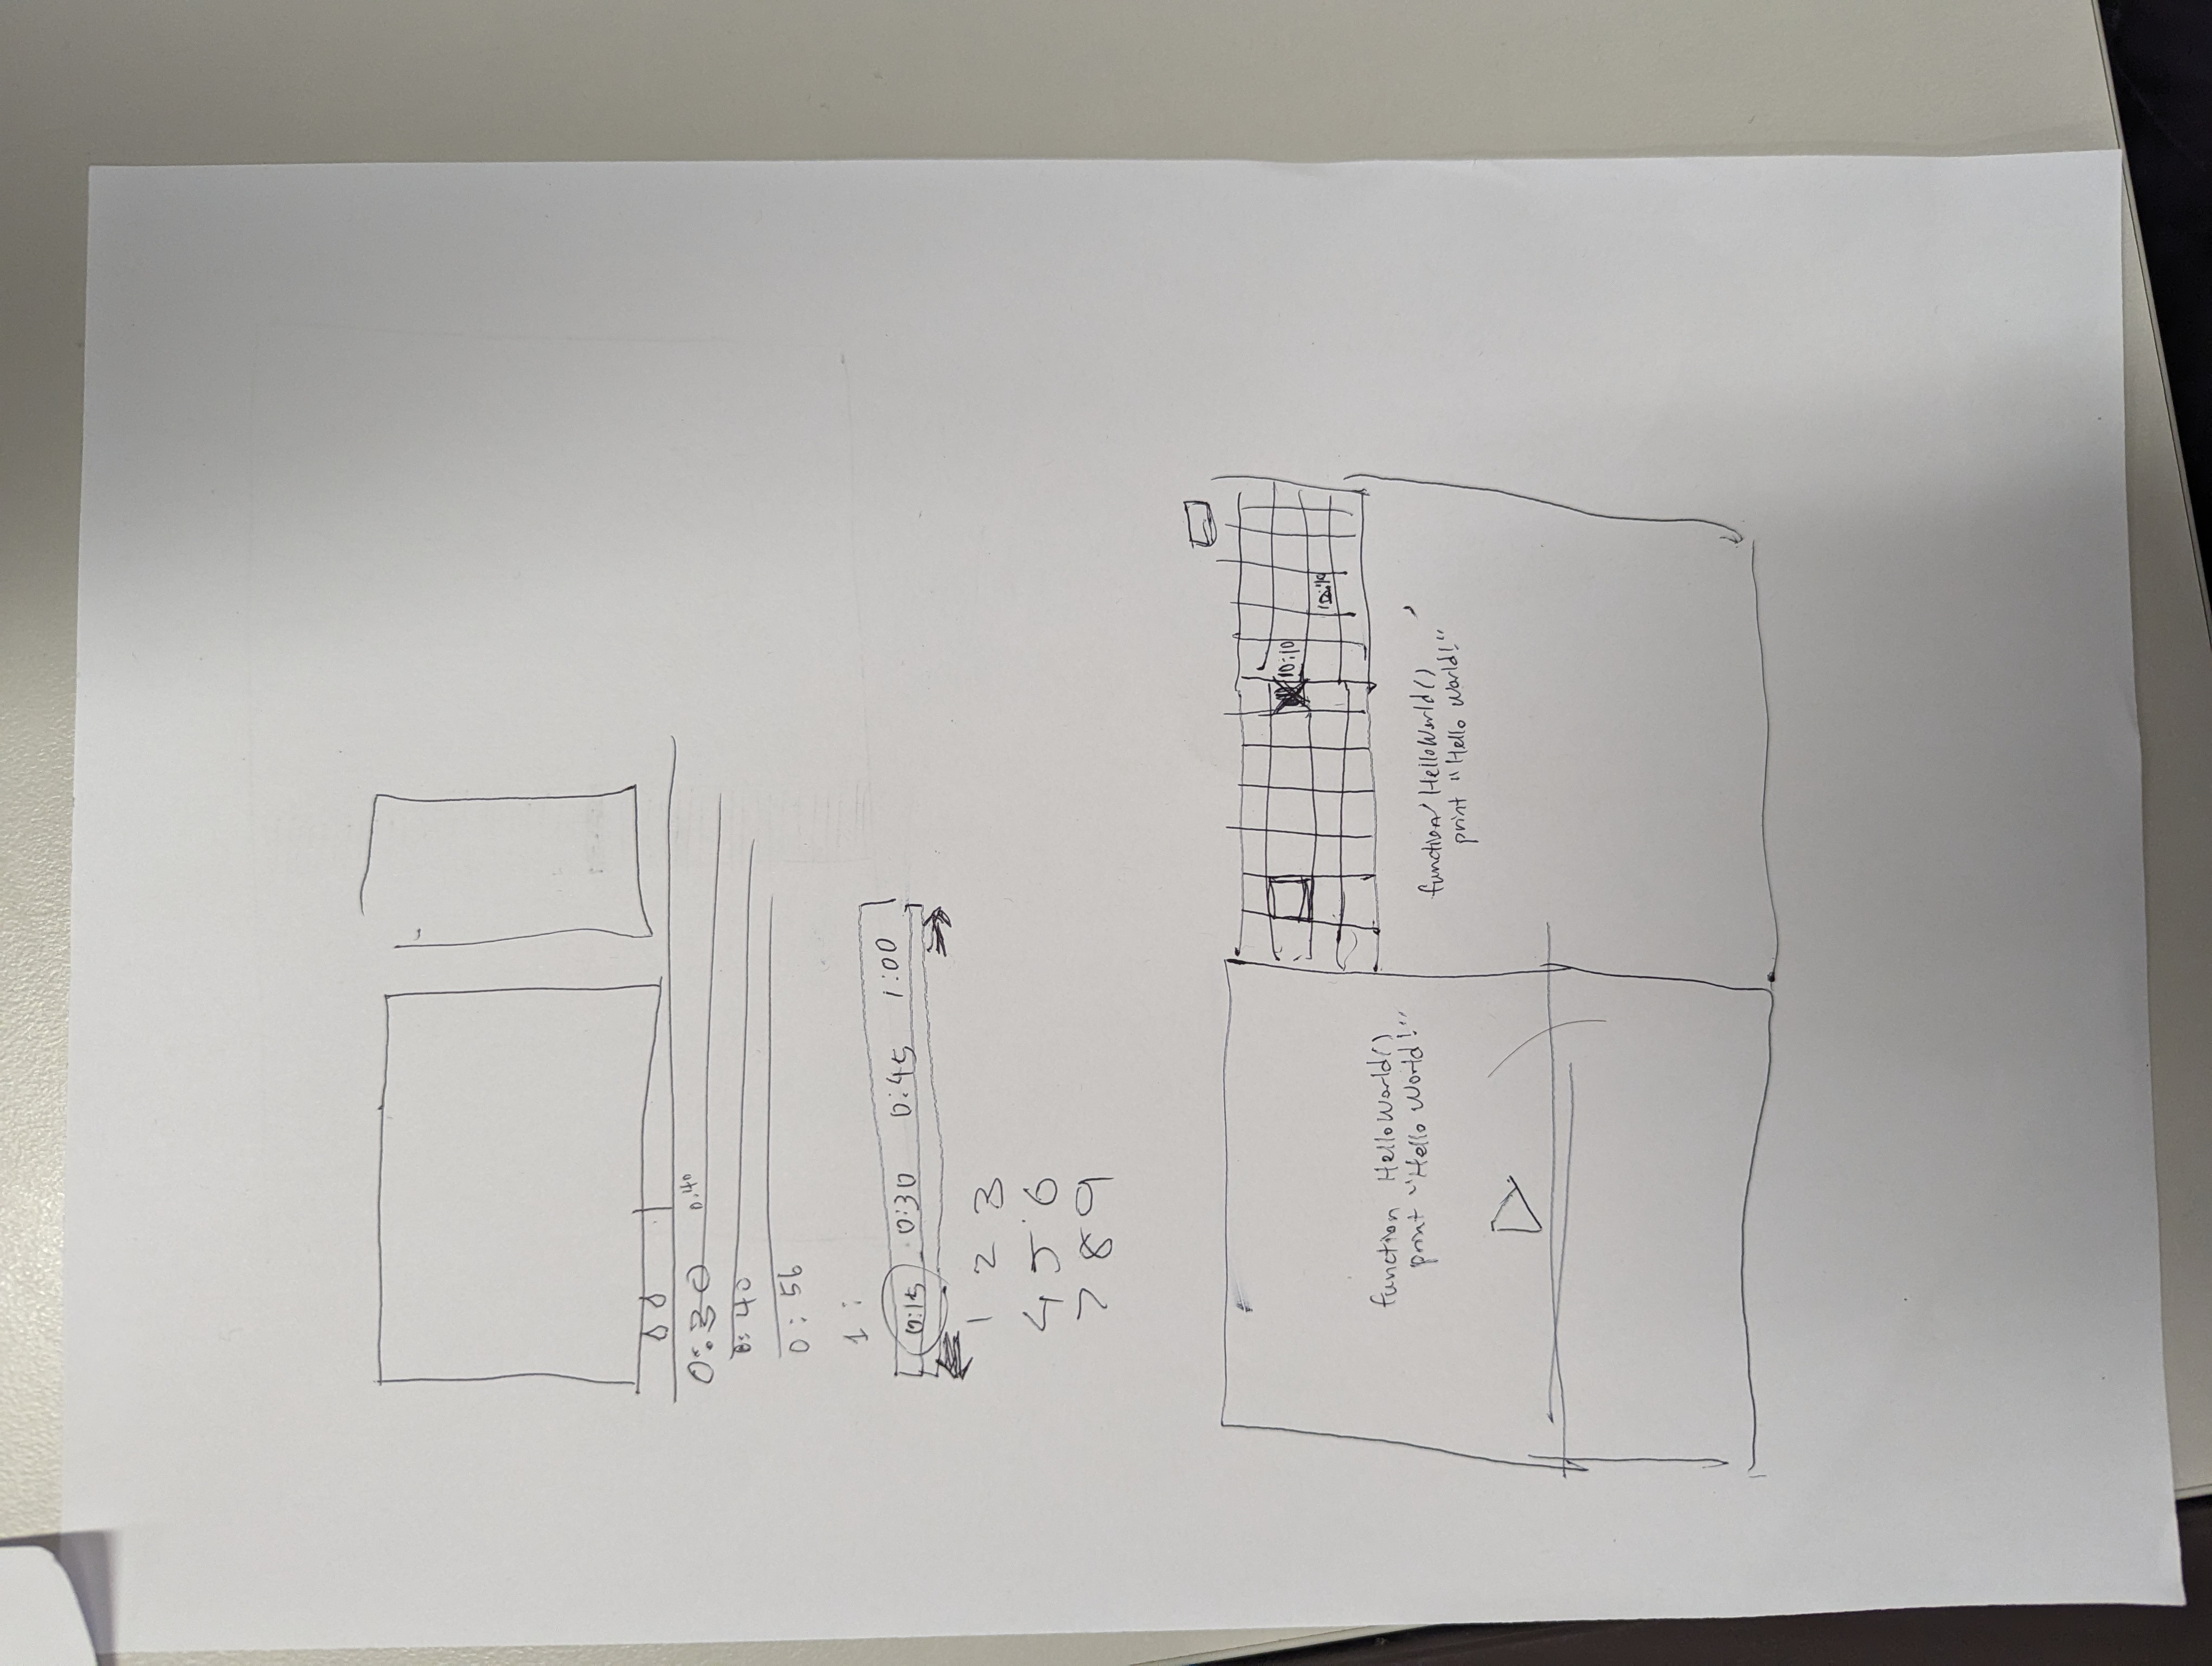 0:40
0:30
0:40
0:56
1:
0:15 0:30 0:45 1:00
1 2 3
4 5 6
7 8 9
10:10
function HelloWorld()
print "Hello World!"
function HelloWorld()
print "Hello World!"